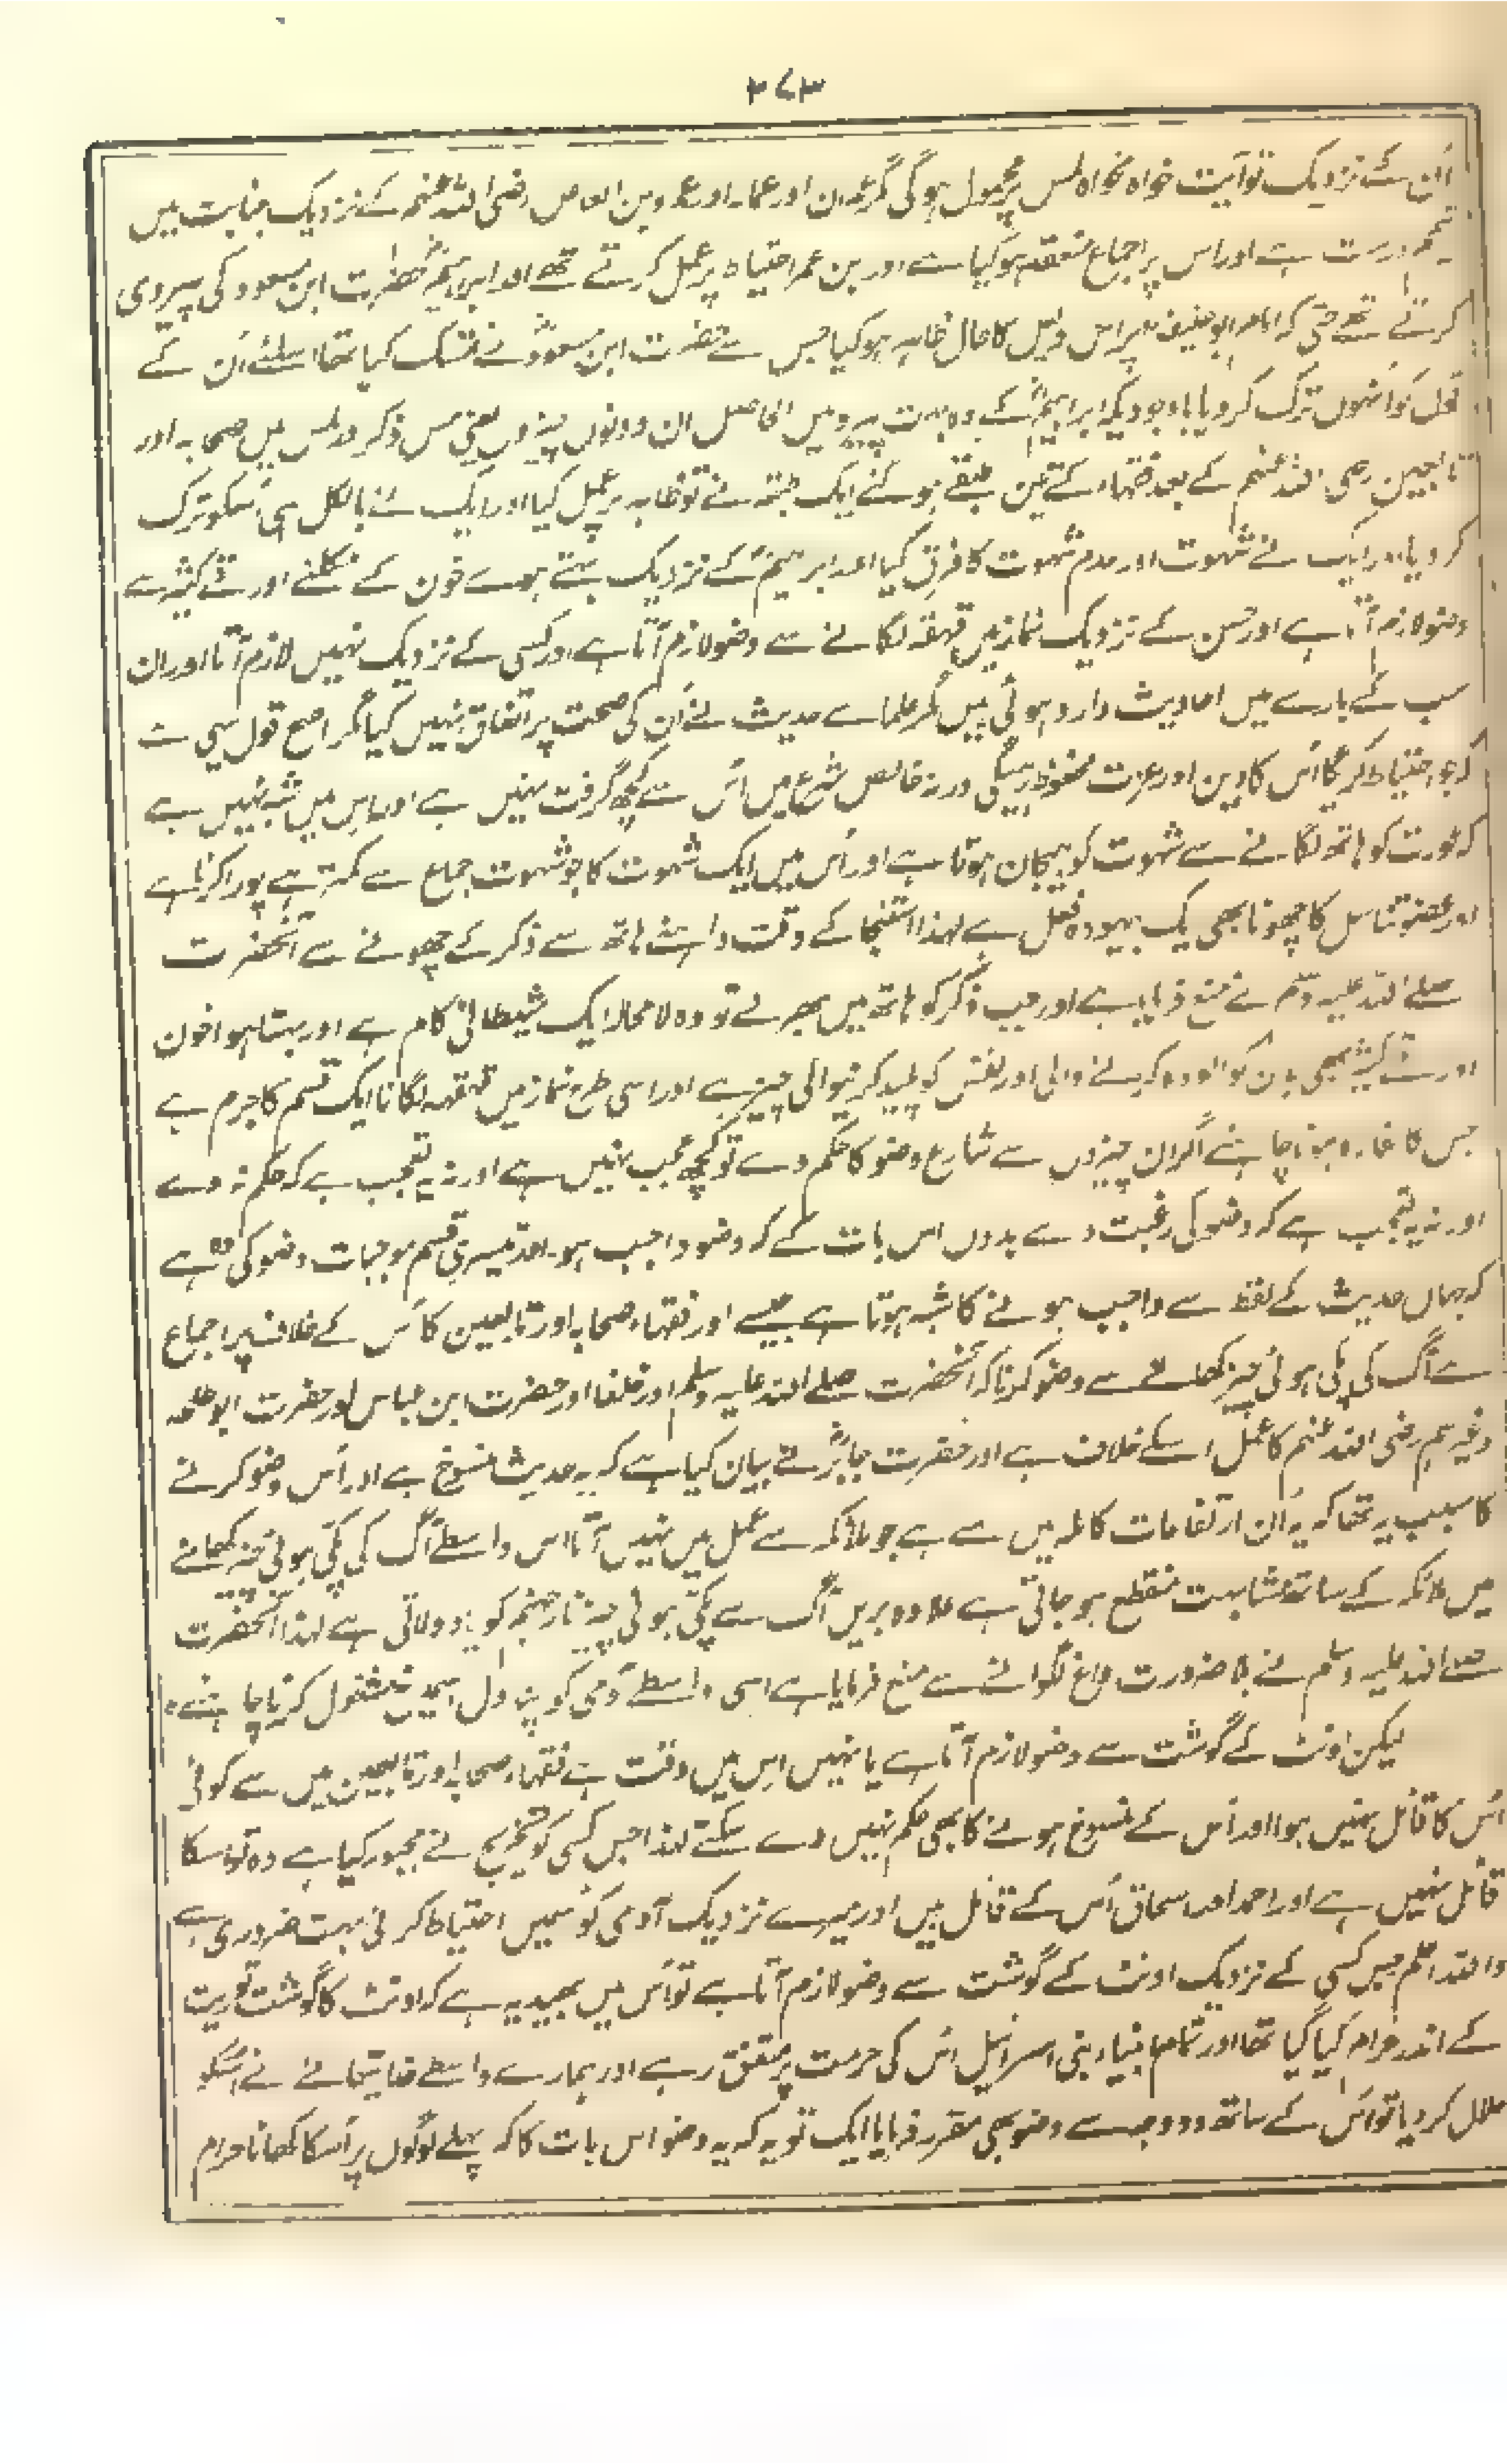 ۳۷۳
اُن کے نزدیک تو آیت خواہ نخواہ لمس پر محمول ہوگی مگر عمران اور عمار اور عمرو بن العاص رضی اللہ عنہم کے نزدیک جنابت میں
تیمم درست ہے اور اس پر اجماع منعقد ہوگیا ہے اور بن عمر احتیاط پر عمل کرتے تھے اور ابراہیمؒ حضرت ابن مسعود کی پیروی
کرتے تھے حتی کہ امام ابو حنیفہ پر اس دلیل کا حال ظاہر ہوگیا جس سے حضرت ابن مسعودؓ نے تمسک کیا تھا اسلئے اُن کے
قول کو اُنہوں ترک کر دیا باوجودیکہ ابراہیمؒ کے وہ بہت پیرو ہیں الحاصل ان دونوں چیزوں یعنی مس ذکر و لمس میں صحابہ اور
تابعین رضی اللہ عنہم کے بعد فقہاء کے تین طبقے ہوگئے ایک طبقہ نے تو ظاہر پر عمل کیا اور ایک نے بالکل ہی اُسکو ترک
کر دیا اور ایک نے شہوت اور عدم شہوت کا فرق کیا اور ابراہیمؒ کے نزدیک بہتے ہوے خون کے نکلنے اور قے کثیر سے
وضو لازم آتا ہے اور حسن کے نزدیک نماز میں قہقہہ لگانے سے وضو لازم آتا ہے اور کسی کے نزدیک نہیں لازم آتا اور ان
سب کے بارے میں احادیث وارد ہوئی ہیں مگر علماے حدیث نے اُن کی صحت پر اتفاق نہیں کیا مگر اصح قول یہی ہے
کہ جو احتیاط کریگا اُس کا دین اور عزت محفوظ رہیگی ورنہ خالص شرع میں اُس سے کچھ گرفت نہیں ہے اور اس میں شبہ نہیں ہے
کہ عورت کو ہاتھ لگانے سے شہوت کو ہیجان ہوتا ہے اور اُس میں ایک شہوت کا جو شہوت جماع سے کمتر ہے پورا کرنا ہے
اور عضو تناسل کا چھونا بھی یک بیہودہ فعل ہے لہذا استنجا کے وقت داہنے ہاتھ سے ذکر کے چھونے سے آنحضرت
صلے اللہ علیہ وسلم نے منع فرمایا ہے اور جب ذکر کو ہاتھ میں بھر لے تو وہ لا محالہ ایک شیطانی کام ہے اور بہتا ہوا خون
اور قے کثیر بھی بدن کو آلودہ کرنے والی اور نفس کو پلید کرنیوالی چیز ہے اور اسی طرح نماز میں قہقہہ لگانا ایک قسم کا جرم ہے
جس کا کفارہ ہونا چاہئے اگر ان چیزوں سے شارع وضو کا حکم دے تو کچھ عجب نہیں ہے اور نہ یہ تعجب ہے کہ حکم نہ دے
اور نہ یہ تعجب ہے کہ وضو کی رغبت دے بدوں اس بات کے کہ وضو واجب ہو۔ اور تیسری قسم موجبات وضو کی وہ ہے
کہ جہاں حدیث کے لفظ سے واجب ہونے کا شبہ ہوتا ہے جیسے اور فقہاء صحابہ اور تابعین کا اُس کے خلاف پر اجماع
ہے آگ کی پکی ہوئی چیز کھانے سے وضو کرنا کہ آنحضرت صلے اللہ علیہ وسلم اور خلفا اور حضرت ابن عباس اور حضرت ابو طلحہ
وغیرہم رضی اللہ عنہم کا عمل اسکے خلاف ہے اور حضرت جابرؓ نے بیان کیا ہے کہ یہ حدیث منسوخ ہے اور اُس وضو کرنے
کا سبب یہ تھا کہ یہ اُن ارتفاقات کاملہ میں سے ہے جو ملائکہ سے عمل میں نہیں آتا اس واسطے آگ کی پکی ہوئی چیز کھانے
میں ملائکہ کے ساتھ مشابہت منقطع ہو جاتی ہے علاوہ بریں آگ سے پکی ہوئی چیز نار جہنم کو یاد دلاتی ہے لہذا آنحضرت
صلے اللہ علیہ وسلم نے بلا ضرورت داغ لگوانے سے منع فرمایا ہے اسی واسطے آدمی کو اپنا دل اسمیں نہ مشغول کرنا چاہئے۔
لیکن اونٹ کے گوشت سے وضو لازم آتا ہے یا نہیں اس میں دقت ہے فقہاء صحابہ اور تابعین میں سے کوئی
اُس کا قائل نہیں ہوا اور اُس کے منسوخ ہونے کا بھی حکم نہیں دے سکتے لہذا جس کسی کو تخریج نے مجبور کیا ہے وہ تو اسکا
قائل نہیں ہے اور احمد اور اسحاق اُس کے قائل ہیں اور میرے نزدیک آدمی کو اسمیں احتیاط کرنی بہت ضروری ہے
واللہ اعلم جس کسی کے نزدیک اونٹ کے گوشت سے وضو لازم آتا ہے تو اُس میں بھید یہ ہے کہ اونٹ کا گوشت توریت
کے اندر حرام کیا گیا تھا اور تمام انبیاء بنی اسرائیل اُس کی حرمت پر متفق رہے اور ہمارے واسطے خدایتعالے نے اُسکو
حلال کر دیا تو اُس کے ساتھ دو وجہ سے وضو بھی مقرر فرمایا ایک تو یہ کہ یہ وضو اس بات کا کہ پہلے لوگوں پر اُسکا کھانا حرام